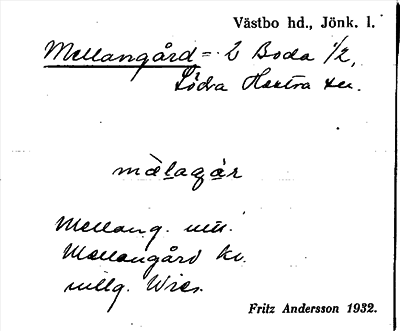 Västbo hd., Jönk. l.
Mellangård = 2 Boda 1/2,
Södra Hestra sn.
mèlagår
Mellang.
Mellangård kv.
millg. Wies.
Fritz Andersson 1932.